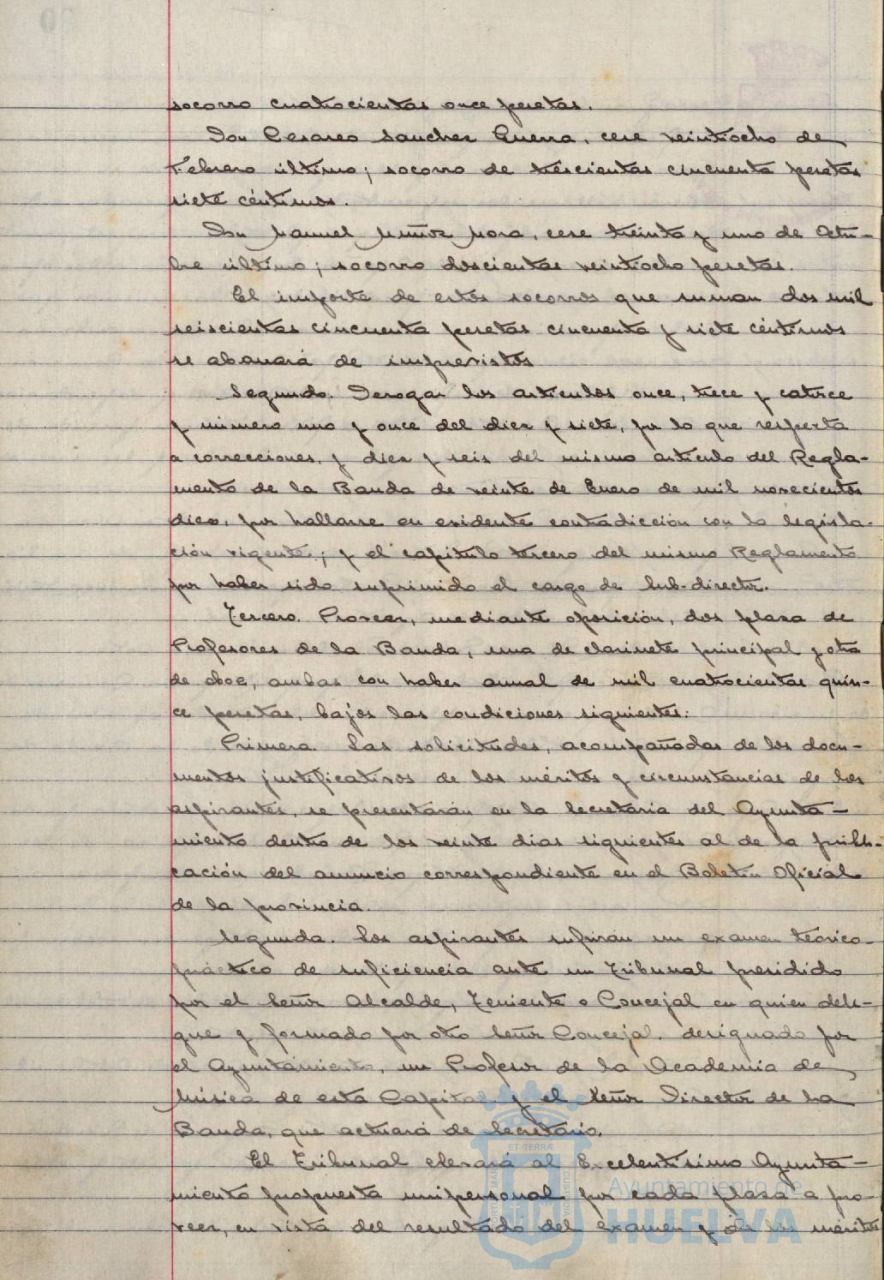 socorro cuatrocientas once pesetas.
Don Cesareo Sanchez Guerra, cese veintiocho de
Febrero último; socorro de trescientas cincuenta pesetas
siete céntimos.
Don Manuel Muñoz Mora, cese treinta y uno de Octu-
bre último; socorro doscientas veintiocho pesetas.
El importe de estos socorros que suman dos mil
seiscientas cincuenta pesetas cincuenta y siete céntimos
se abonará de imprevistos
Segundo. Derogar los artículos once, trece y catorce
y número uno y once del diez y siete, por lo que respecta
a correcciones, y diez y seis del mismo artículo del Regla-
mento de la Banda de veinte de Enero de mil novecientos
diez, por hallarse en evidente contradicción con la legisla-
ción vigente; y el capítulo tercero del mismo Reglamento
por haber sido suprimido el cargo de Sub-director.
Tercero. Proveer, mediante oposición, dos plaza de
Profesores de la Banda, una de clarinete principal y otra
de oboe, ambas con haber anual de mil cuatrocientas quin-
ce pesetas, bajos las condiciones siguientes:
Primera. Las solicitudes, acompañadas de los docu-
mentos justificativos de los méritos y circunstancias de los
aspirantes, se presentarán en la Secretaría del Ayunta-
miento dentro de los veinte días siguientes al de la publi-
cación del anuncio correspondiente en el Boletín Oficial
de la provincia.
Segunda. Los aspirantes sufrirán un examen teórico-
práctico de suficiencia ante un Tribunal presidido
por el Señor Alcalde, Teniente o Concejal en quien dele-
gue y formado por otro Señor Concejal, designado por
el Ayuntamiento, un Profesor de la Academia de
Música de esta Capital y el Señor Director de la
Banda, que actuará de Secretario.
El Tribunal elevará al Excelentísimo Ayunta-
miento propuesta unipersonal por cada plaza a pro-
veer, en vista del resultado del examen y de los méritos
Ayuntamiento de
HUELVA